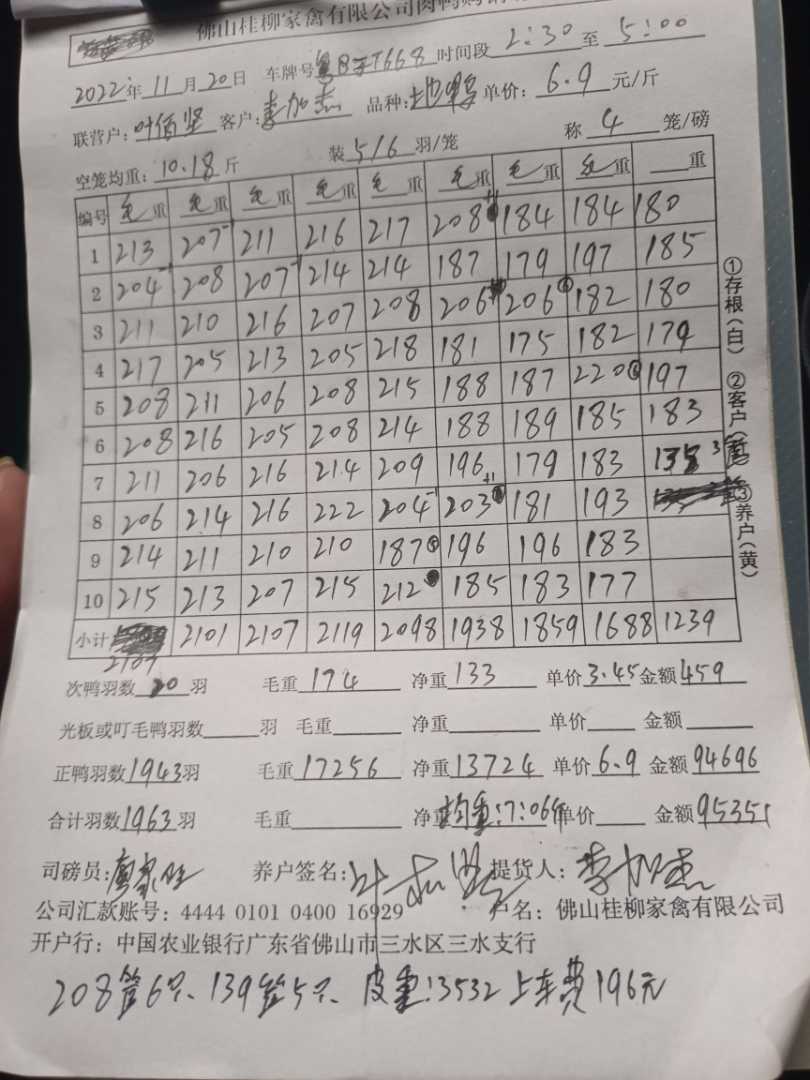 佛山桂柳家禽有限公司肉鸭购销
2022年11月20日 车牌号 时间段 2:30 至 5:00
联营户:叶佰坚 客户:李加杰 品种: 单价: 6.9 元/斤
空笼均重: 10.18斤 装 5/6 羽/笼 称 4 笼/磅
编号 毛重 毛重 毛重 毛重 毛重 毛重 毛重 毛重 重
1 213 207-1 211 216 217 208 184 184 180
2 204-1 208 207-1 214 214 187 179 197 185
3 211 210 216 207 208 206 206 182 180
4 217 205 213 205 218 181 175 182 179
5 208 211 206 208 215 188 187 220 197
6 208 216 205 208 214 188 189 185 183
7 211 206 216 214 209 196 179 183 135 3笼
8 206 214 216 222 204-1 203+1 181 193
9 214 211 210 210 187 196 196 183
10 215 213 207 215 212 185 183 177
小计 2107 2101 2107 2119 2098 1938 1859 1688 1239
①存根(白) ②客户(蓝) ③养户(黄)
次鸭羽数 20 羽 毛重 174 净重 133 单价 3.45 金额 459
光板或叮毛鸭羽数 羽 毛重 净重 单价 金额
正鸭羽数 1943 羽 毛重 17256 净重 13724 单价 6.9 金额 94696
合计羽数 1963 羽 毛重 净重 均重:7.06斤 单价 金额 95355
司磅员: 养户签名: 提货人:李加杰
公司汇款账号:4444 0101 0400 16929 户名:佛山桂柳家禽有限公司
开户行:中国农业银行广东省佛山市三水区三水支行
208笼6只、139笼5只、皮重:3532 上车费196元